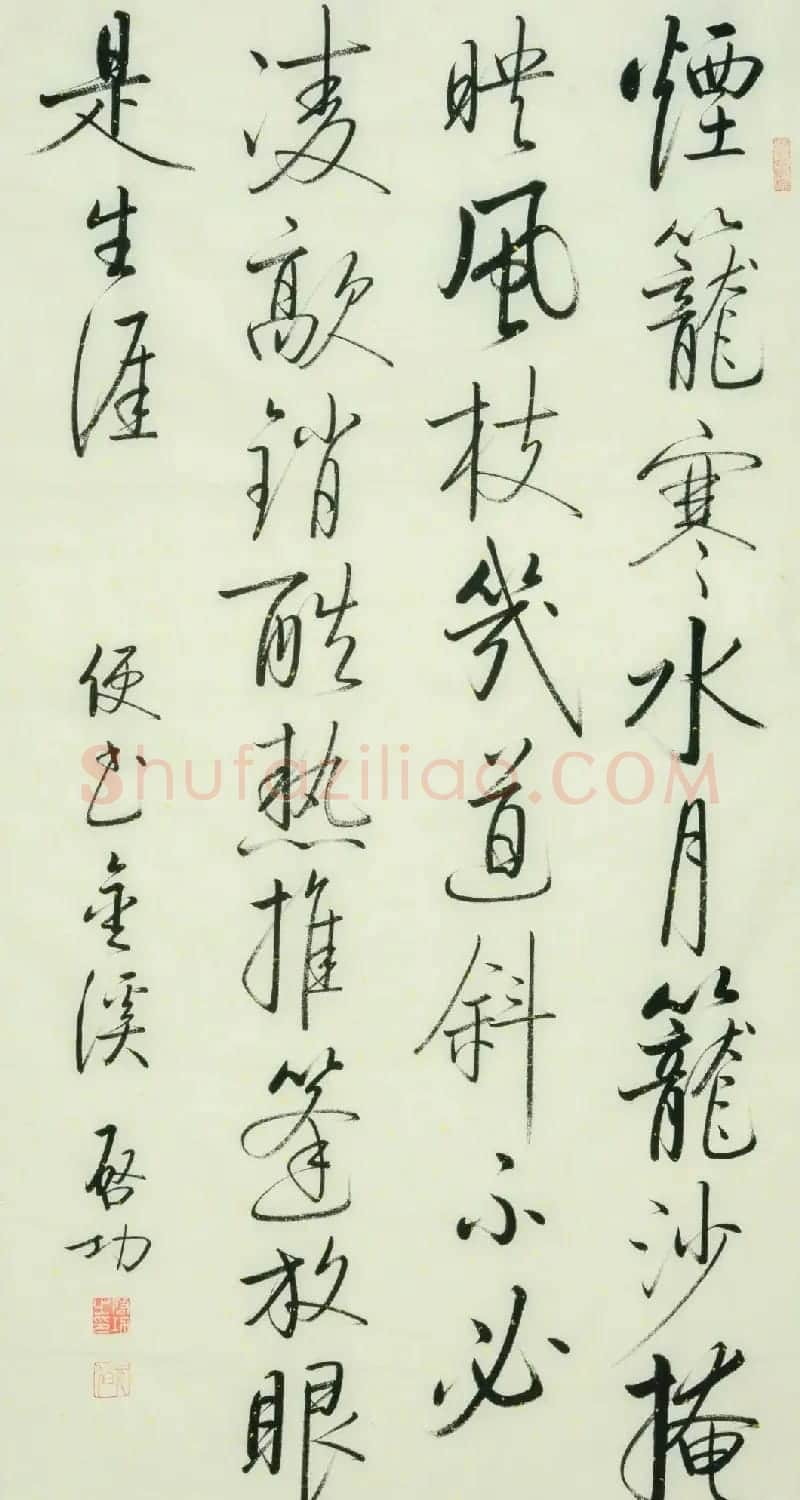 煙籠寒水月籠沙掩
映風枝幾道斜不必
凌歊銷酷熱推篷放眼
是生涯
便書金溪 啓功
Shufaziliao.COM